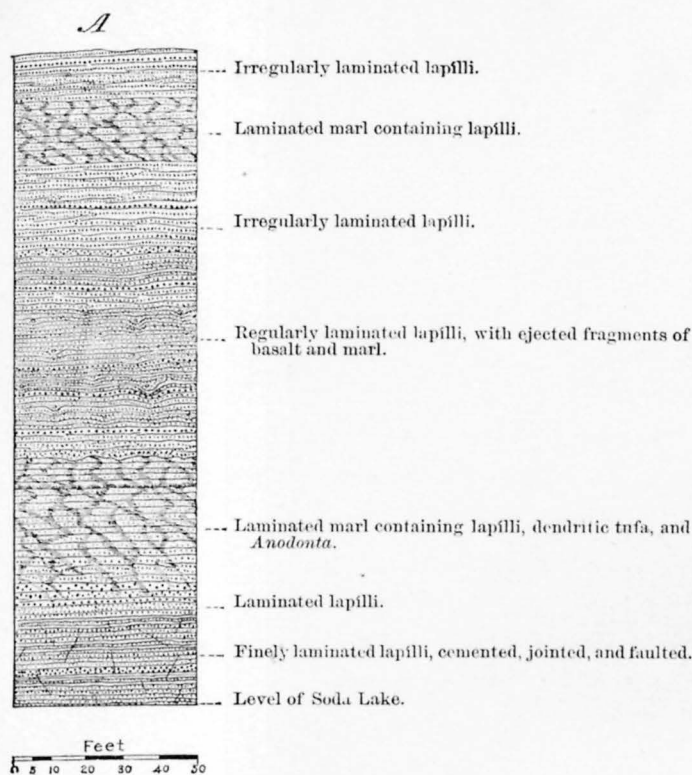 A
Irregularly laminated lapilli.
Laminated marl containing lapilli.
Irregularly laminated lapilli.
Regularly laminated lapilli, with ejected fragments of
basalt and marl.
Laminated marl containing lapilli, dendritic tufa, and
Anodonta.
Laminated lapilli.
Finely laminated lapilli, cemented, jointed, and faulted.
Level of Soda Lake.
Feet
0 5 10 20 30 40 50